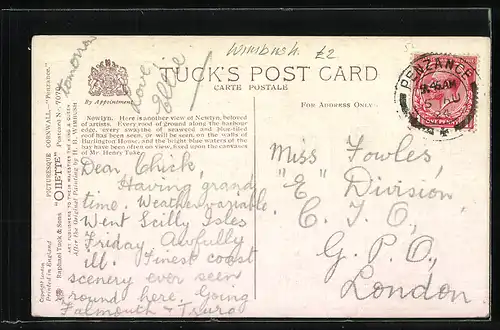 Wimbush. £2
TUCK'S POST CARD
CARTE POSTALE
By Appointment
FOR ADDRESS ONLY
tomorrow
Love
Ellie
Newlyn. Here is another view of Newlyn, beloved
of artists. Every rood of ground along the harbour
edge, every swathe of seaweed and blue-tiled
roof has been seen, or will be seen, on the walls of
Burlington House, and the bright blue waters of the
bay have been often on view, fixed upon the canvas
of Mr. Henry Tuke.
PICTURESQUE CORNWALL.—"Penzance."
Raphael Tuck & Sons' "OILETTE"
After the Original Painting by H. B. WIMBUSH
Copyright London
Printed in England
Dear Chick,
Having grand
time. Weather variable
Went Scilly Isles
Friday. Awfully
ill. Finest coast
scenery ever seen
round here. Going
Falmouth + Truro
Miss Fowles,
"E" Division
C. T. O,
G. P. O,
London
PENZANCE